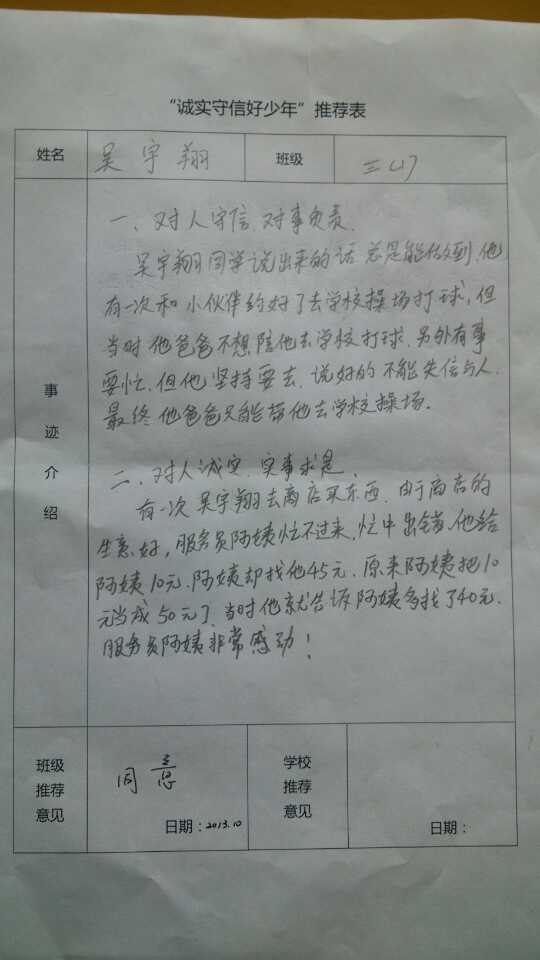 “诚实守信好少年”推荐表
姓名 吴宇翔 班级 三(1)
事迹介绍
一、对人守信、对事负责.
吴宇翔同学说出来的话总是能做到,他
有一次和小伙伴约好了去学校操场打球,但
当时他爸爸不想陪他去学校打球,另外有事
要忙.但他坚持要去,说好的不能失信与人.
最终他爸爸只能带他去学校操场.
二、对人诚实、实事求是.
有一次吴宇翔去商店买东西,由于商店的
生意好,服务员阿姨忙不过来,忙中出错.他给
阿姨10元.阿姨却找他45元.原来阿姨把10
元当成50元了.当时他就告诉阿姨多找了40元.
服务员阿姨非常感动!
班级推荐意见
同意
日期:2013.10
学校推荐意见
日期: